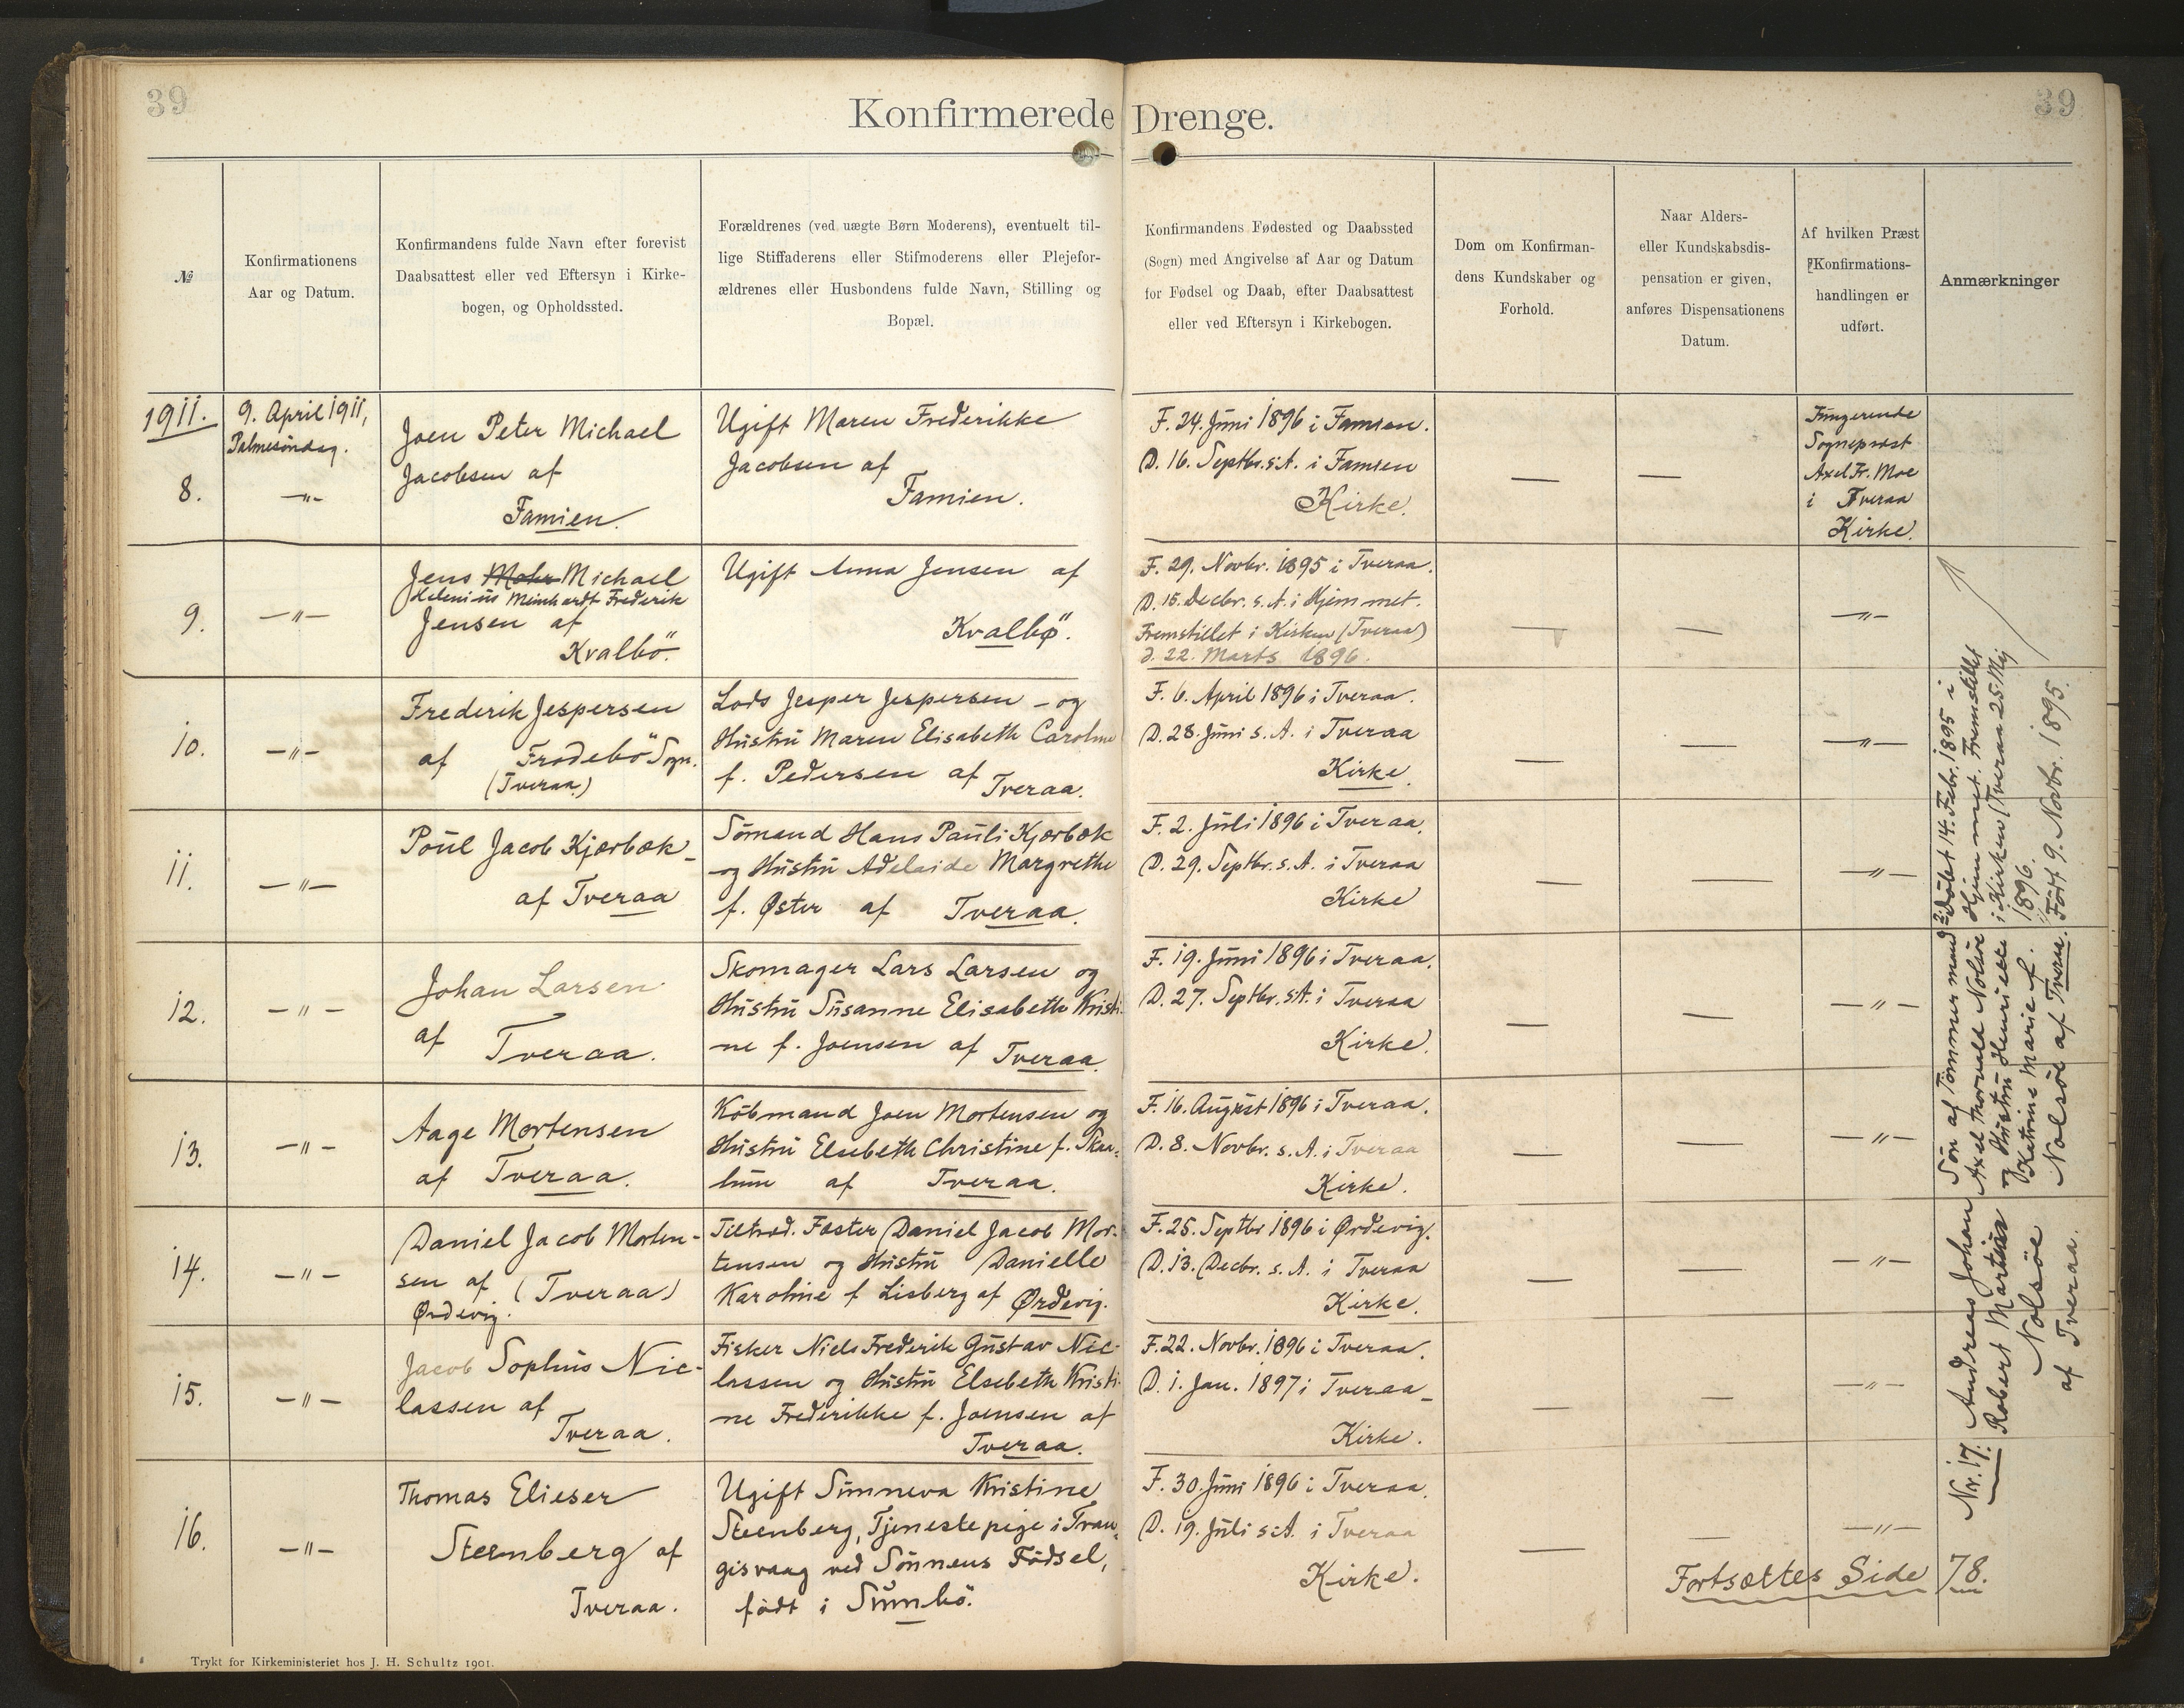 39
39
Konfirmerede Drenge.
№
Konfirmationens
Aar og Datum.
Konfirmandens fulde Navn efter forevist
Daabsattest eller ved Eftersyn i Kirke-
bogen, og Opholdssted.
Forældrenes (ved uægte Børn Moderens), eventuelt til-
lige Stiffaderens eller Stifmoderens eller Plejefor-
ældrenes eller Husbondens fulde Navn, Stilling og
Bopæl.
Konfirmandens Fødested og Daabssted
(Sogn) med Angivelse af Aar og Datum
for Fødsel og Daab, efter Daabsattest
eller ved Eftersyn i Kirkebogen.
Dom om Konfirman-
dens Kundskaber og
Forhold.
Naar Alders-
eller Kundskabsdis-
pensation er given,
anføres Dispensationens
Datum.
Af hvilken Præst
Konfirmations-
handlingen er
udført.
Anmærkninger
1911.
8.
9. April 1911,
Palmesöndag.
—"—
Joen Peter Michael
Jacobsen af
Famien.
Ugift Maren Frederikke
Jacobsen af
Famien.
F. 24. Juni 1896 i Famien.
D. 16. Septbr. s. A. i Famien
Kirke.
—
—
Fungerende
Sognepræst
Axel Fr. Moe
i Tveraa
Kirke.
9.
—"—
Jens Mohr Michael
Helenius Meinhardt Frederik
Jensen af
Kvalbö.
Ugift Anna Jensen af
Kvalbø.
F. 29. Novbr. 1895 i Tveraa.
D. 15. Decbr. s. A. i Hjemmet.
Fremstillet i Kirken (Tveraa)
d. 22. Marts 1896.
—
—
—"—
10.
—"—
Frederik Jespersen
af Frodebö Sogn.
(Tveraa)
Lods Jesper Jespersen - og
Hustru Maren Elisabeth Caroline
f. Pedersen af Tveraa.
F. 6. April 1896 i Tveraa.
D. 28. Juni s. A. i Tveraa
Kirke.
—
—
—"—
11.
—"—
Poul Jacob Kjærbæk -
af Tveraa
Sömand Hans Pauli Kjærbæk
og Hustru Adelaide Margrethe
f. Øster af Tveraa.
F. 2. Juli 1896 i Tveraa.
D. 29. Septbr. s. A. i Tveraa
Kirke
—
—
—"—
12.
—"—
Johan Larsen
af Tveraa.
Skomager Lars Larsen og
Hustru Susanne Elisabeth Kristi-
ne f. Joensen af Tveraa.
F. 19. Juni 1896 i Tveraa.
D. 27. Septbr. s. A. i Tveraa
Kirke.
—
—
—"—
13.
—"—
Aage Mortensen
af Tveraa.
Köbmand Joen Mortensen og
Hustru Elsebeth Christine f. Skaa-
lum af Tveraa.
F. 16. August 1896 i Tveraa.
D. 8. Novbr. s. A. i Tveraa
Kirke.
—
—
—"—
14.
—"—
Daniel Jacob Morten-
sen af (Tveraa)
Ørdevig.
Tiltræd. Fæster Daniel Jacob Mor-
tensen og Hustru Danielle
Karoline f. Lisberg af Ørdevig.
F. 25. Septbr 1896 i Ørdevig.
D. 13. Decbr. s. A. i Tveraa
Kirke.
—
—
—"—
15.
—"—
Jacob Sophus Nic-
lassen af
Tveraa.
Fisker Niels Frederik Gustav Nic-
lassen og Hustru Elsebeth Kristi-
ne Frederikke f. Joensen af
Tveraa.
F. 22. Novbr. 1896 i Tveraa.
D. 1. Jan. 1897 i Tveraa -
Kirke.
—
—
—"—
16.
—"—
Thomas Elieser
Steenberg af
Tveraa.
Ugift Sunneva Kristine
Steenberg, Tjenestepige i Tran-
gisvaag ved Sönnens Födsel,
födt i Sumbö.
F. 30. Juni 1896 i Tveraa.
D. 19. Juli s. A. i Tveraa
Kirke.
—
—
—"—
Fortsættes Side 78.
Nr. 17. Andreas Johan
Robert Martin
Nolsöe
af Tveraa.
Sön af Tömmermand
Axel Thorvald Nolsöe
og Hustru Henriette
Katrine Marie f.
Nolsöe af Tveraa.
Döbt 14. Febr. 1895 i
Hjemmet. Fremstillet
i Kirken (Tveraa 25. Maj
1896.
Födt 9. Novbr. 1895.